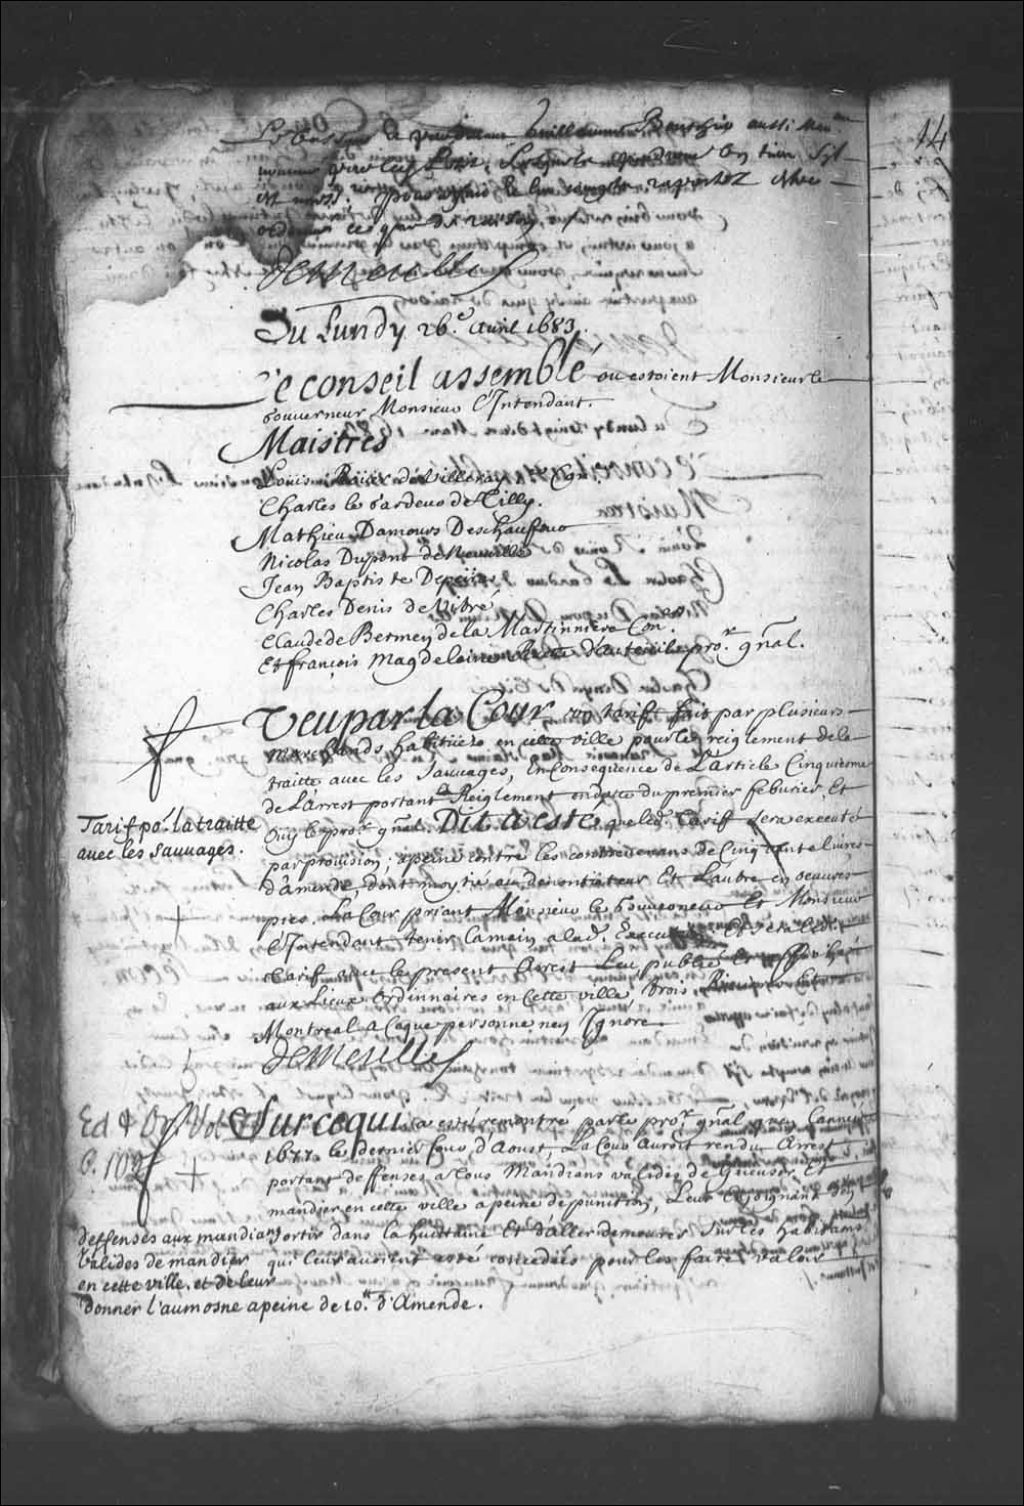 14
Du Lundy 26.e avril 1683.
Le conseil assemblé ou estoient Monsieur le
Gouverneur, Monsieur L'Intendant.
Maistres
Louis Roüer de Villeray
Charles le Gardeur de Tilly.
Mathieu Damours Deschaufour
Nicolas Dupont de Neuville
Jean Baptiste Depeiras
Charles Denis de Vitré
Claude de Bermen de la Martinniere Con.rs
Et françois Magdeleine Ruette d'auteüil pro.r gñal.
Veu par la Cour un tarif fait par plusieurs
marchands habitüez en cette ville pour le reiglement de la
traitte avec les Sauvages, En consequence de L'article Cinquiême
de L'arrest portant Reiglement en datte du premier febvrier, Et
Ouy le pro.r gñal. Dit a esté que led. Tarif sera executé
par provision, a peine contre les contrevenans de Cinquante livres
d'amende, dont moytié au denontiateur Et L'autre en oeuvres
pies. La Cour priant Monsieur le Gouverneur Et Monsieur
L'Intendant tenir la main a lad. Execution Et sera led.
Tarif avec le present Arrest Leu, publié Et affiché
aux Lieux Ordinnaires en Cette ville, trois Rivieres Et
Montreal a Ce que personne n'en Ignore.
DeMeulles
Tarif po.r la traitte
avec les Sauvages.
Sur ce qui a esté remontré par le pro.r gñal que en L'année
1677. le dernier jour d'Aoust, La Cour auroit rendu Arrest
portant deffenses a tous Mandians valides de Gueuser Et
mandier en cette ville a peine de punition, Leur Enjoignant d'en
sortir dans la huittaine Et d'aller demeurer sur les habitans
qui leur avoient esté concedées pour les faire valoir
Ed & Ord Vol
P. 102
deffenses aux mandians
Valides de mandier
en cette ville. et de leur
donner l'aumosne a peine de 10.lt d'Amende.